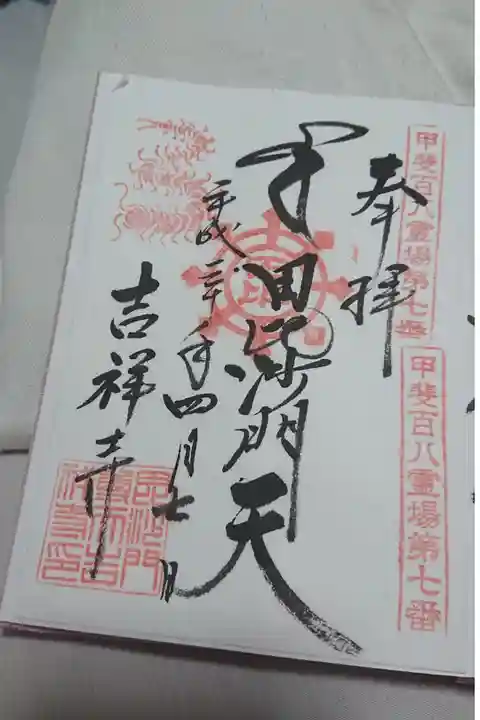 甲斐百八霊場第七番
甲斐百八霊場第七番
奉拝
毘沙門天
平成三十年四月七日
吉祥寺